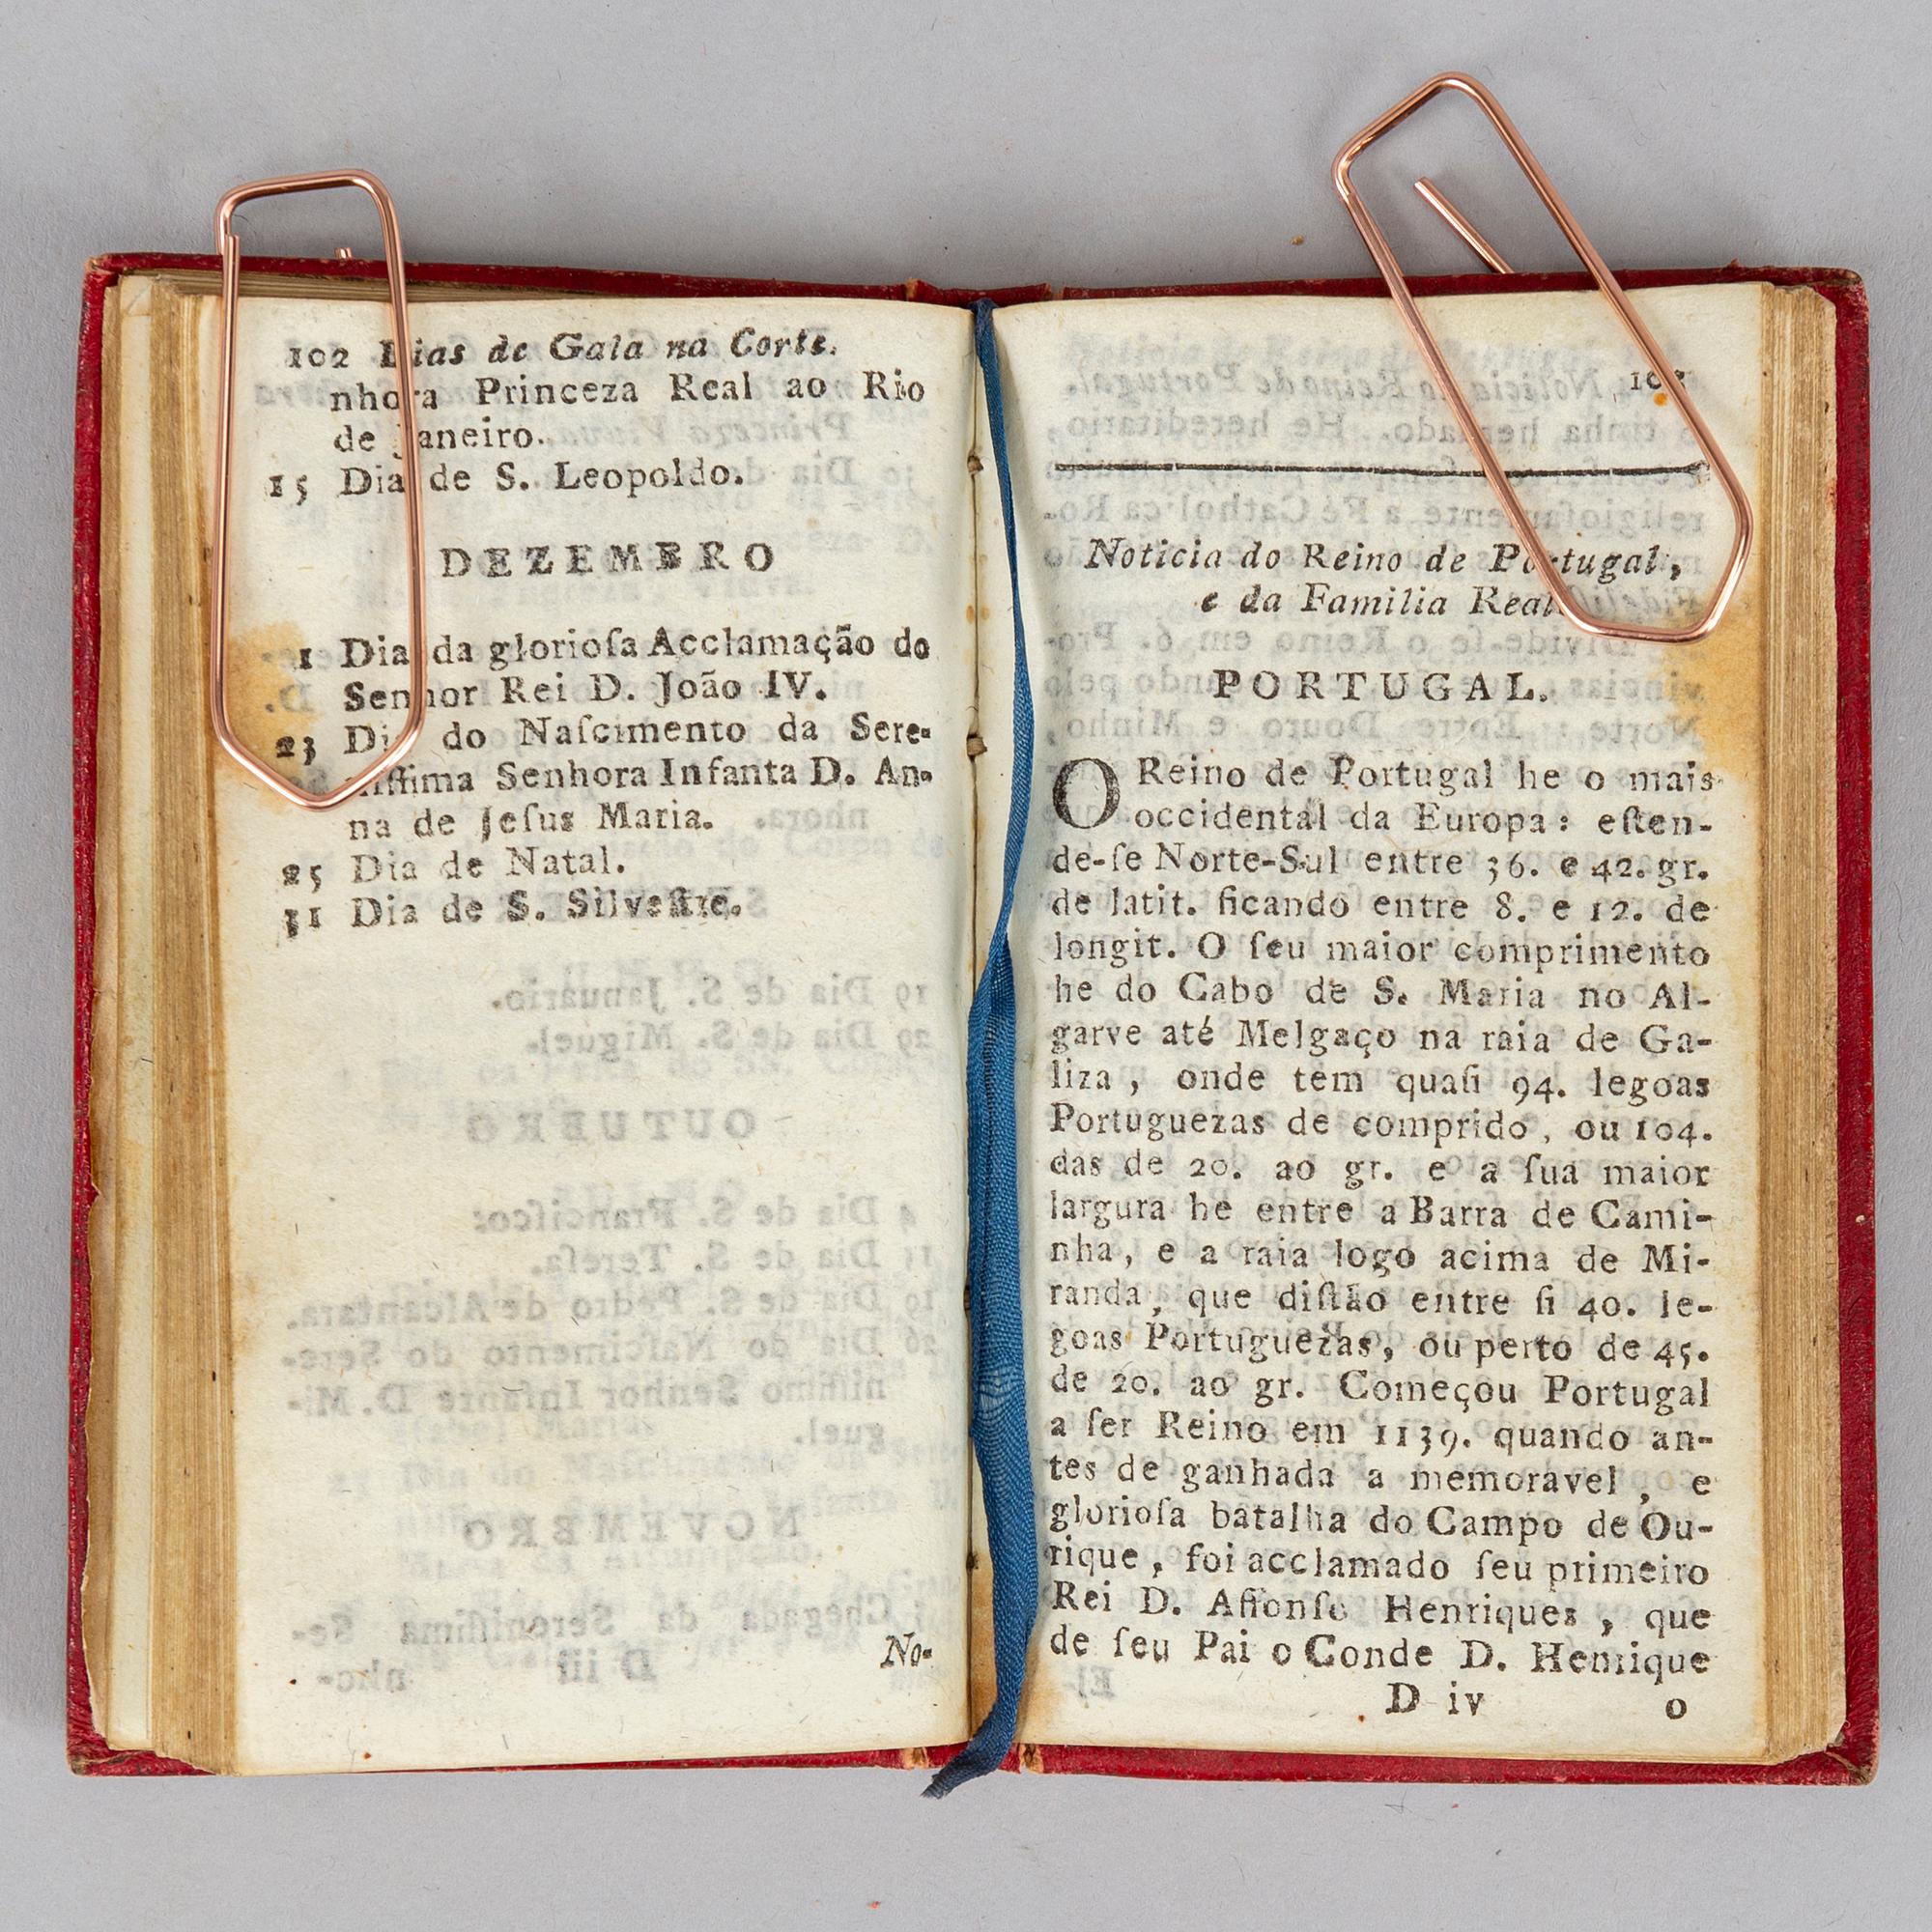 102 Dias de Gala na Corte.
nhora Princeza Real ao Rio
de Janeiro.
15 Dia de S. Leopoldo.
DEZEMBRO
1 Dia da glorioſa Acclamação do
Senhor Rei D. João IV.
23 Dia do Naſcimento da Sere-
niſſima Senhora Infanta D. An-
na de Jeſus Maria.
25 Dia de Natal.
31 Dia de S. Silveſtre.
No-
Noticia do Reino de Portugal,
e da Familia Real
PORTUGAL.
O Reino de Portugal he o mais
occidental da Europa: eſten-
de-ſe Norte-Sul entre 36. e 42. gr.
de latit. ficando entre 8. e 12. de
longit. O ſeu maior comprimento
he do Cabo de S. Maria no Al-
garve até Melgaço na raia de Ga-
liza, onde tem quaſi 94. legoas
Portuguezas de comprido, ou 104.
das de 20. ao gr. e a ſua maior
largura he entre a Barra de Cami-
nha, e a raia logo acima de Mi-
randa, que diſtão entre ſi 40. le-
goas Portuguezas, ou perto de 45.
de 20. ao gr. Começou Portugal
a ſer Reino em 1139. quando an-
tes de ganhada a memoravel, e
glorioſa batalha do Campo de Ou-
rique, foi acclamado ſeu primeiro
Rei D. Affonſo Henriques, que
de ſeu Pai o Conde D. Henrique
D iv o